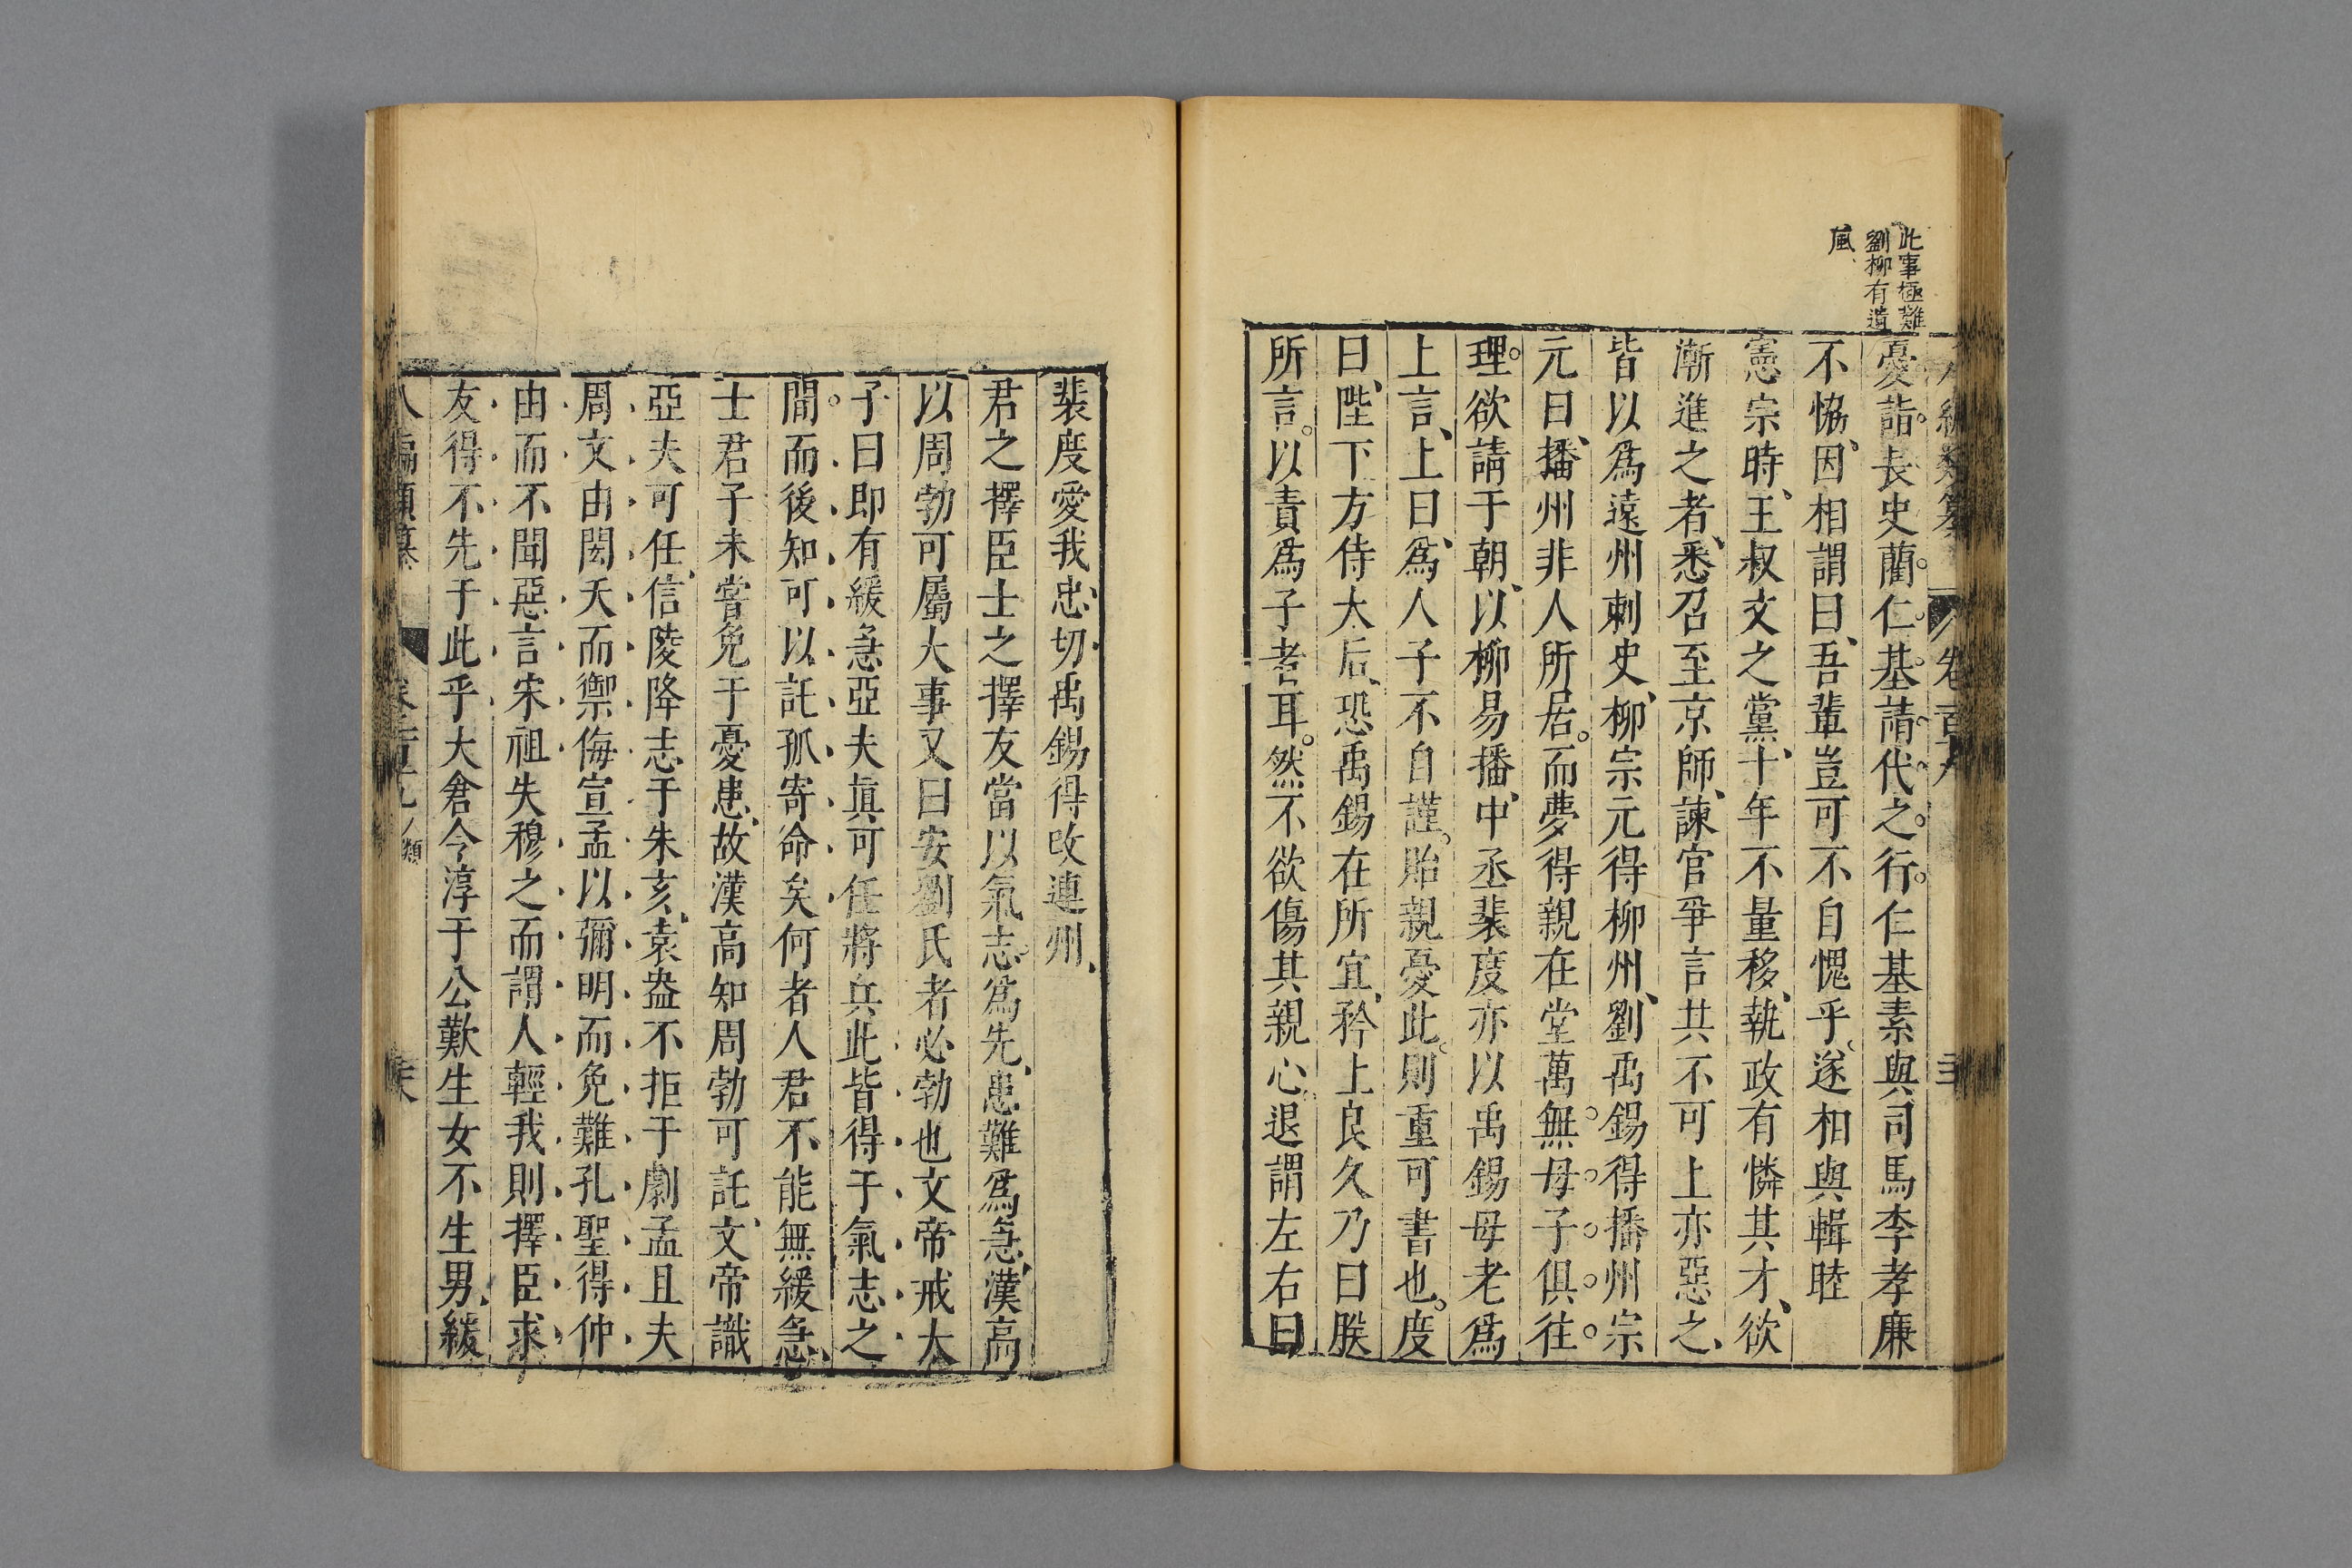 此事極難
劉柳有遺
風
憂詣長史藺仁基請代之行仁基素與司馬李孝廉
不恊因相謂曰吾輩豈可不自愧乎遂相與輯睦
憲宗時王叔文之黨十年不量移執政有憐其才欲
漸進之者悉召至京師諫官爭言其不可上亦惡之
皆以爲遠州刺史柳宗元得柳州劉禹錫得播州宗
元曰播州非人所居而夢得親在堂萬無母子俱往
理欲請于朝以柳易播中丞裴度亦以禹錫母老爲
上言上曰爲人子不自謹貽親憂此則重可書也度
曰陛下方侍太后恐禹錫在所宜矜上良久乃曰朕
所言以責爲子者耳然不欲傷其親心退謂左右曰
裴度愛我忠切禹錫得改連州
君之擇臣士之擇友當以氣志爲先患難爲急漢高
以周勃可屬大事又曰安劉氏者必勃也文帝戒太
子曰即有緩急亞夫眞可任將兵此皆得于氣志之
間而後知可以託孤寄命矣何者人君不能無緩急
士君子未嘗免于憂患故漢高知周勃可託文帝識
亞夫可任信陵降志于朱亥袁盎不拒于劇孟且夫
周文由閎夭而禦侮宣孟以彌明而免難孔聖得仲
由而不聞惡言宋祖失穆之而謂人輕我則擇臣求
友得不先于此乎大倉令淳于公歎生女不生男緩